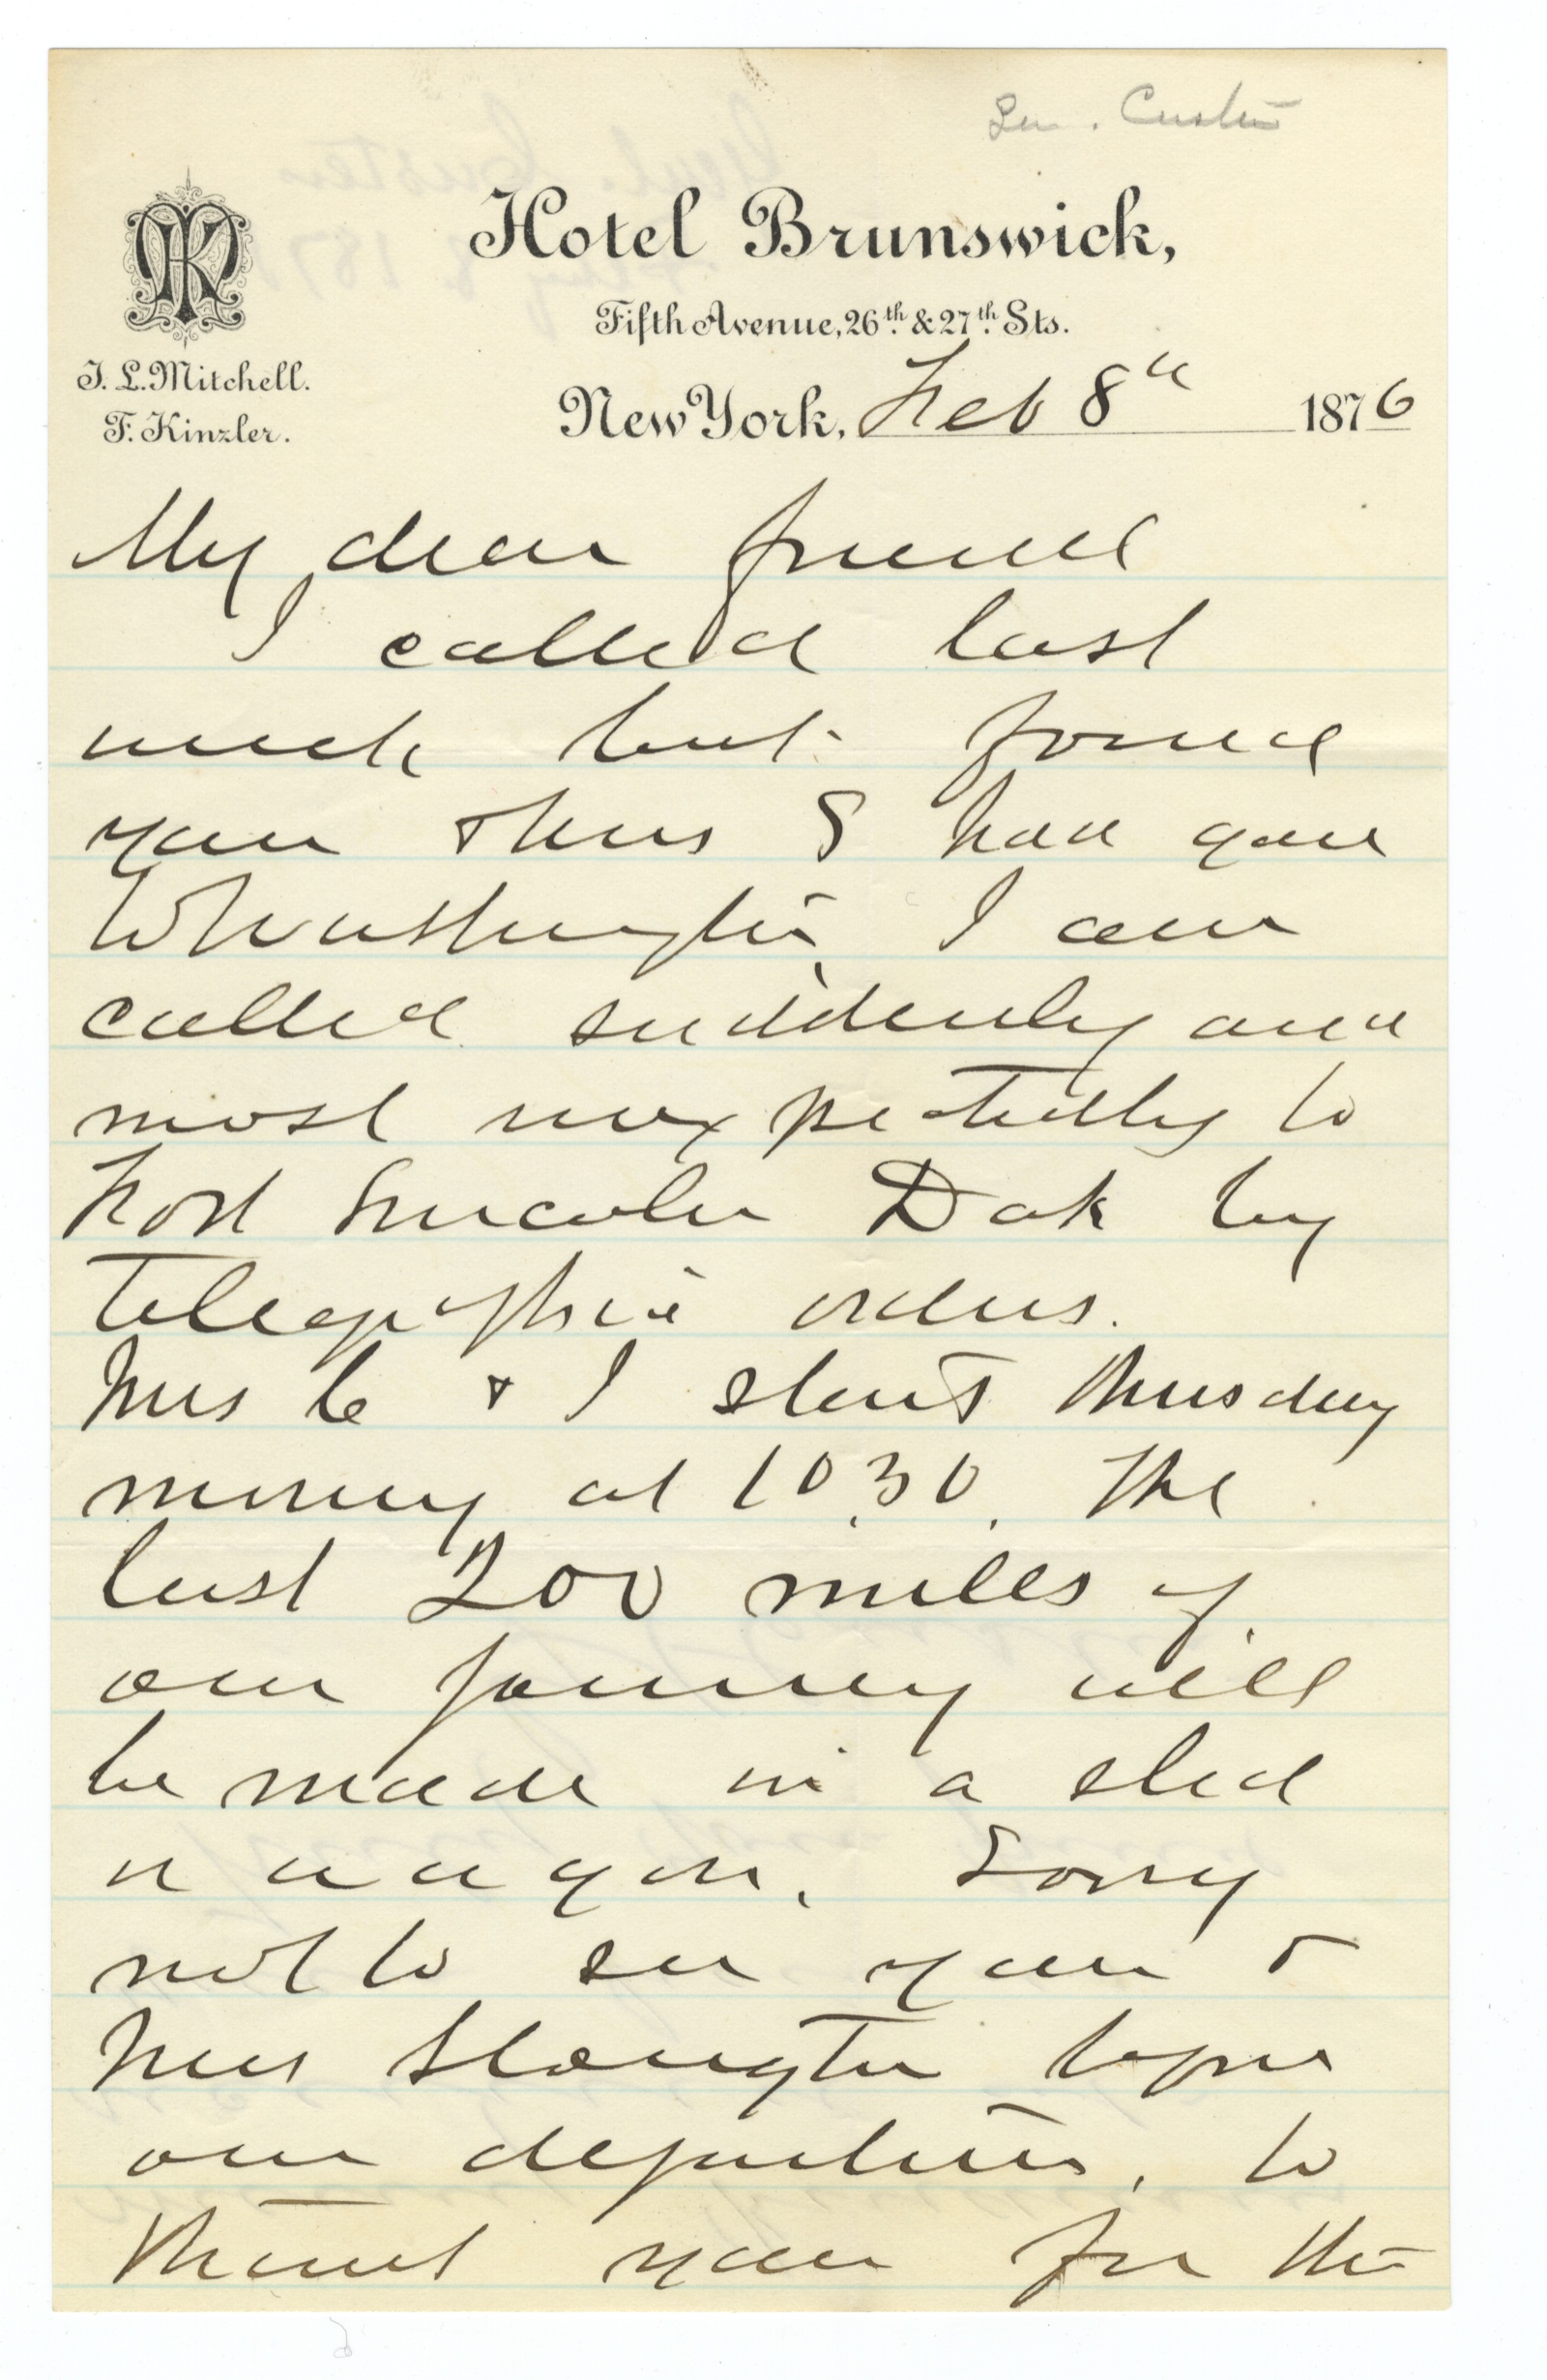 Gen. Custer
Hotel Brunswick,
Fifth Avenue, 26th. & 27th. Sts.
J. L. Mitchell.
F. Kinzler.
New York, Feb 8th 1876
My dear friend
I called last
week but found
you & Mrs S had gone
to Washington. I am
called suddenly and
most unexpectedly to
Fort Lincoln Dak by
telegraphic orders.
Mrs C & I start Thursday
morning at 10.30. The
last 200 miles of
our journey will
be made in a sled
or wagon. Sorry
not to see you &
Mrs before
our departure, to
thank you for the